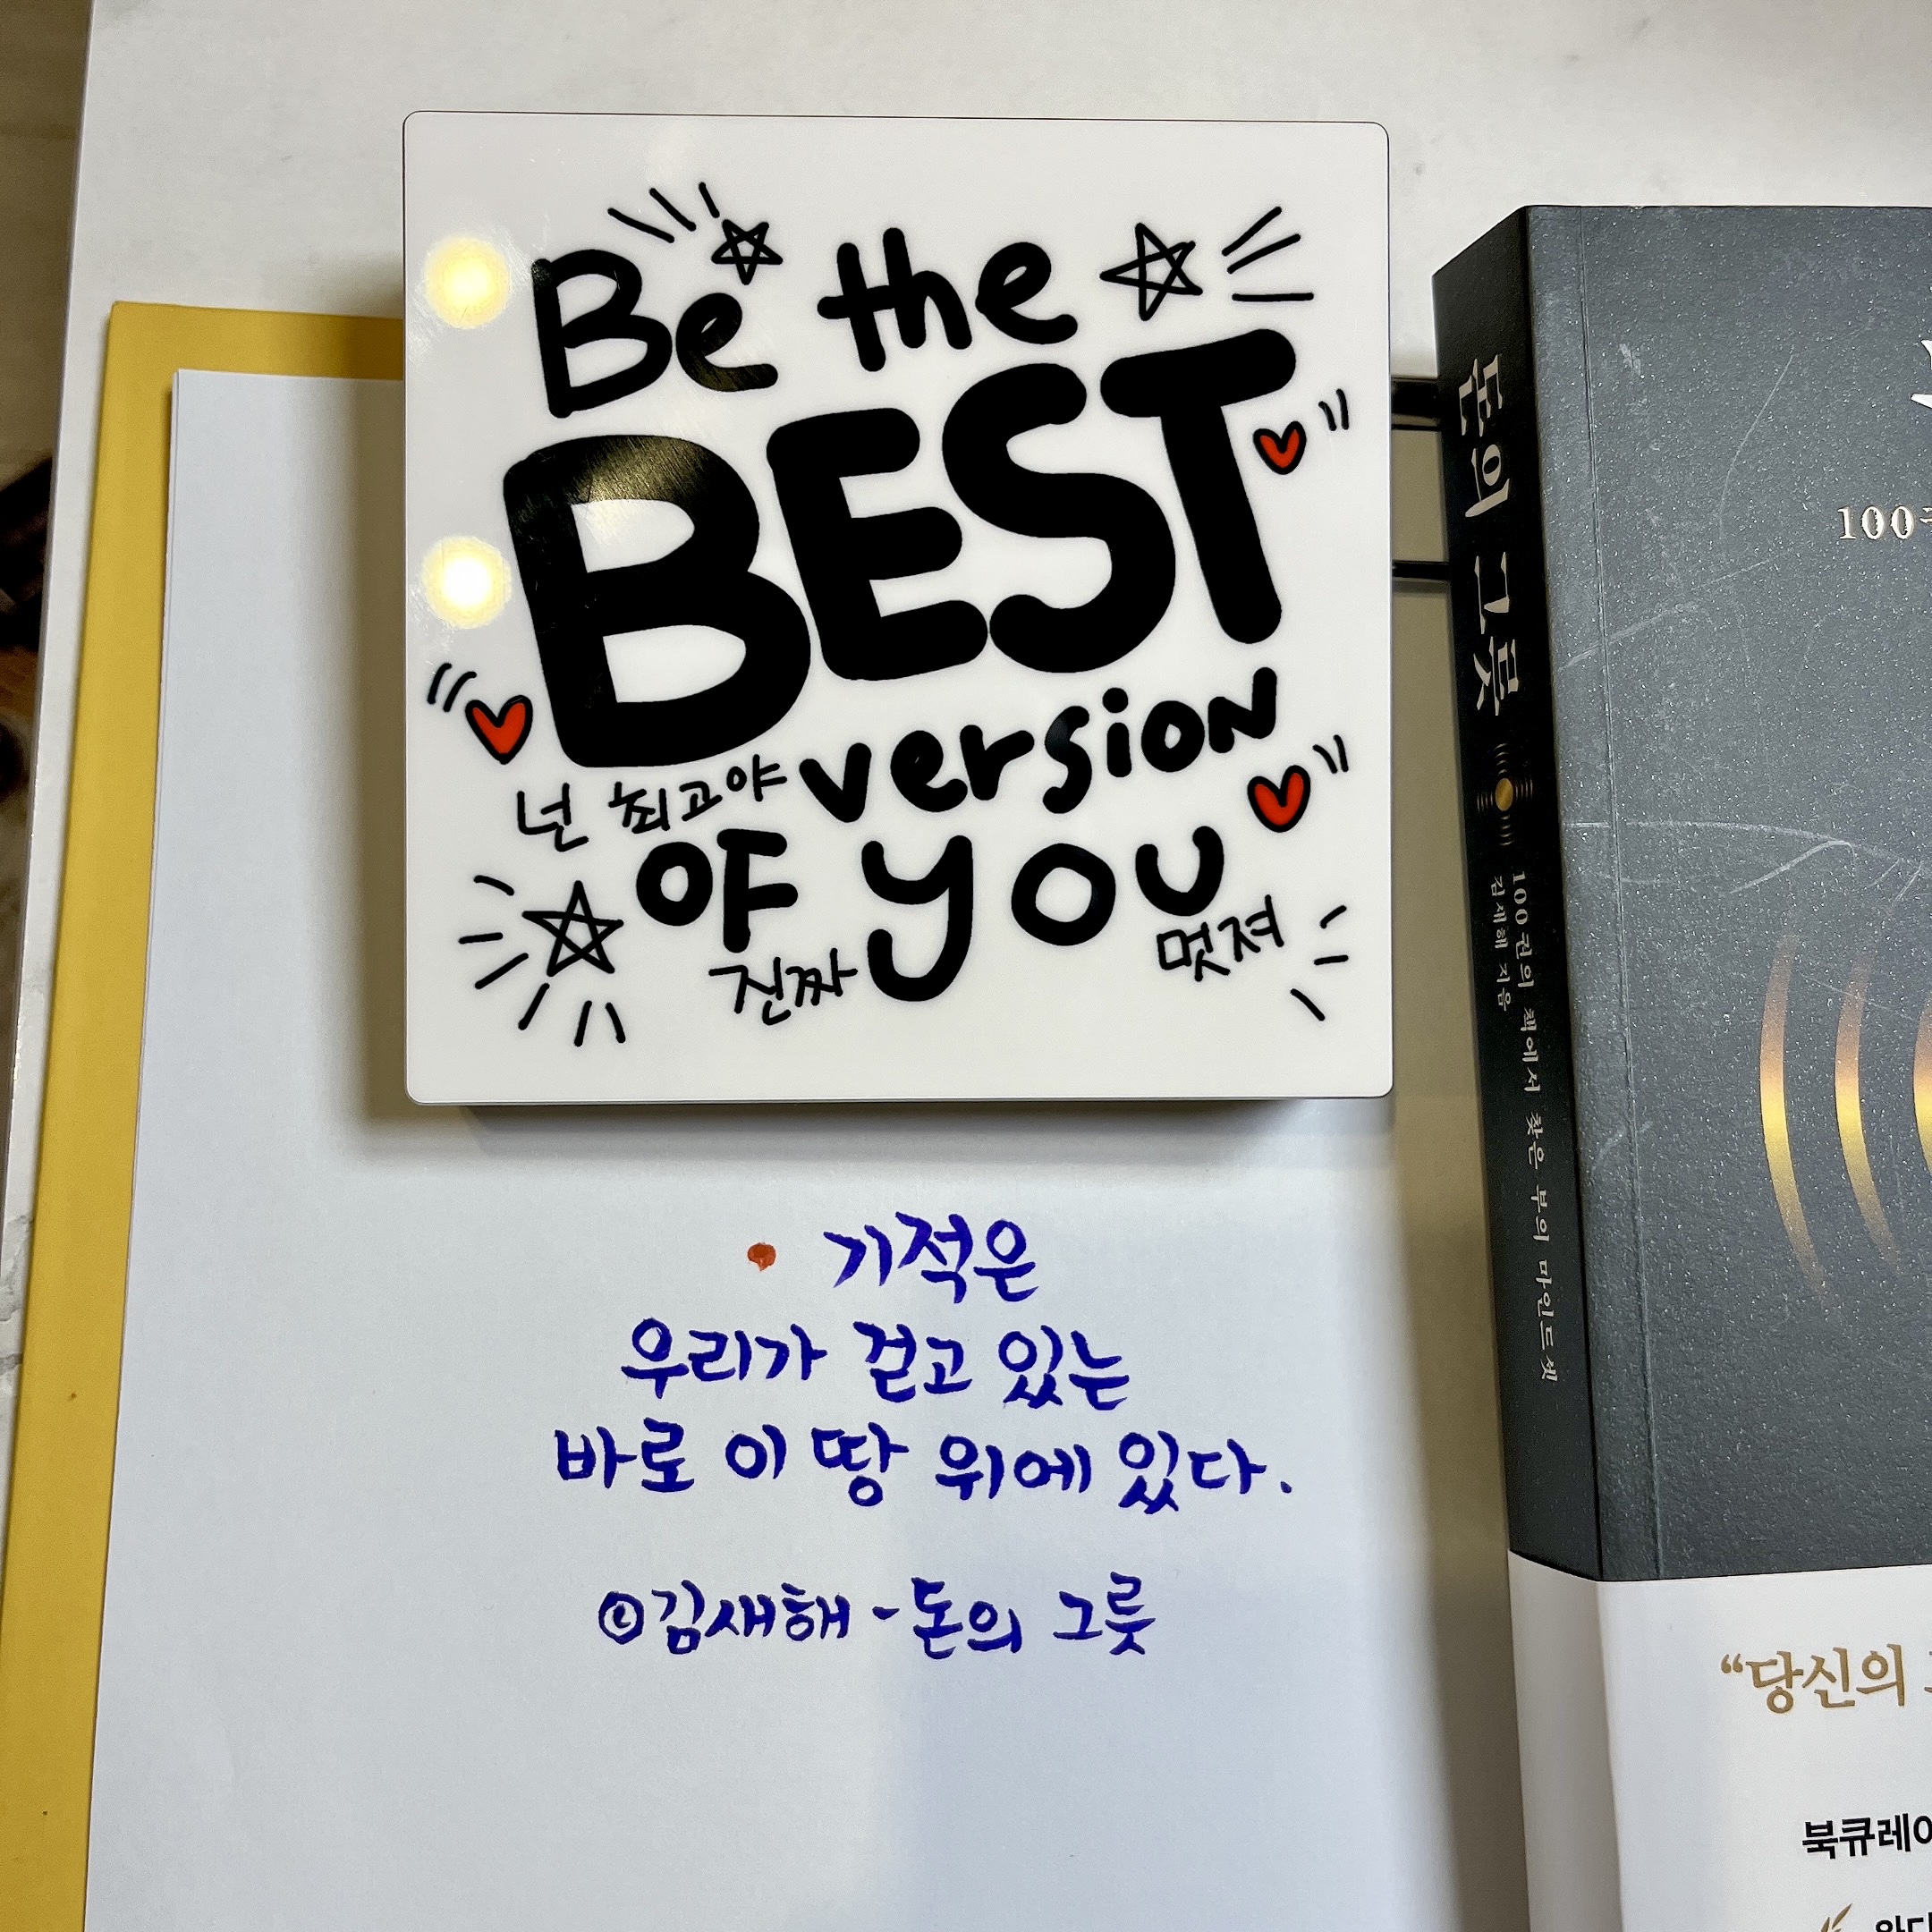 Be the
BEST
version
넌 최고야
of you
진짜
멋져
기적은
우리가 걷고 있는
바로 이 땅 위에 있다.
©김새해 - 돈의 그릇
돈의 그릇
100권의 책에서 찾은 부의 마인드셋
김새해 지음
100
“당신의
북큐레이